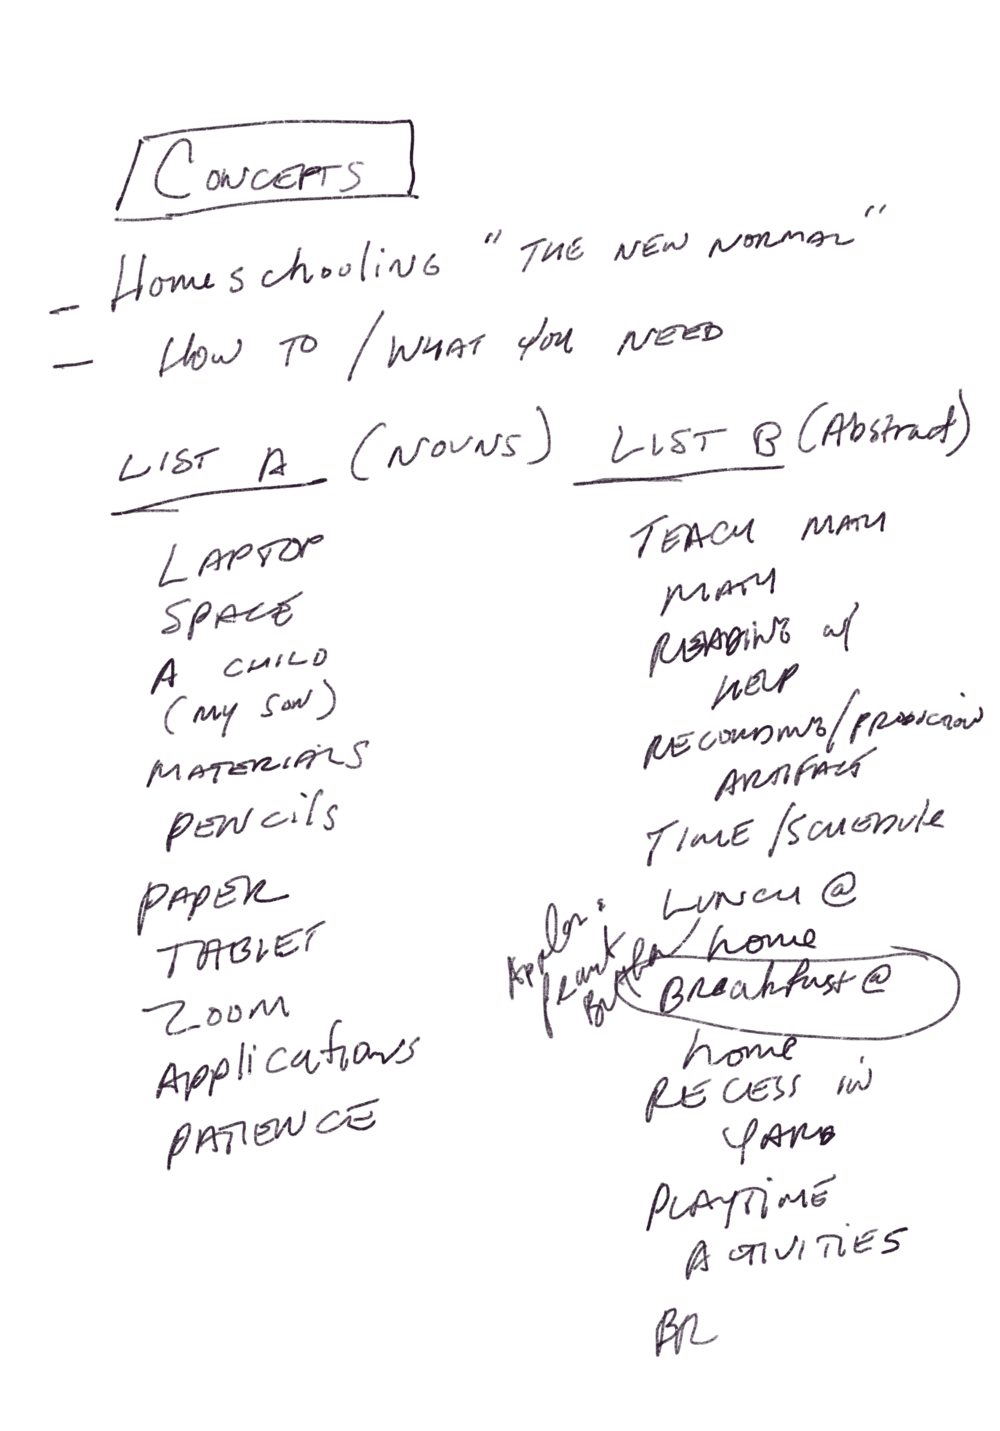 CONCEPTS
- Homeschooling "THE NEW NORMAL"
- HOW TO / WHAT YOU NEED
LIST A (NOUNS)
LAPTOP
SPACE
A CHILD
(MY SON)
MATERIALS
PENCils
PAPER
TABLET
ZOOM
Applications
PATIENCE
LIST B (Abstract)
TEACH MATH
MATH
READING w/
HELP
RECORDING/PRODUCTION
ARTIFACT
TIME/SCHEDULE
LUNCH @
home
Apples:
Peanut
Butter
BReakfast @
home
RECESS IN
YARD
PLAYTIME
ACTIVITIES
BR